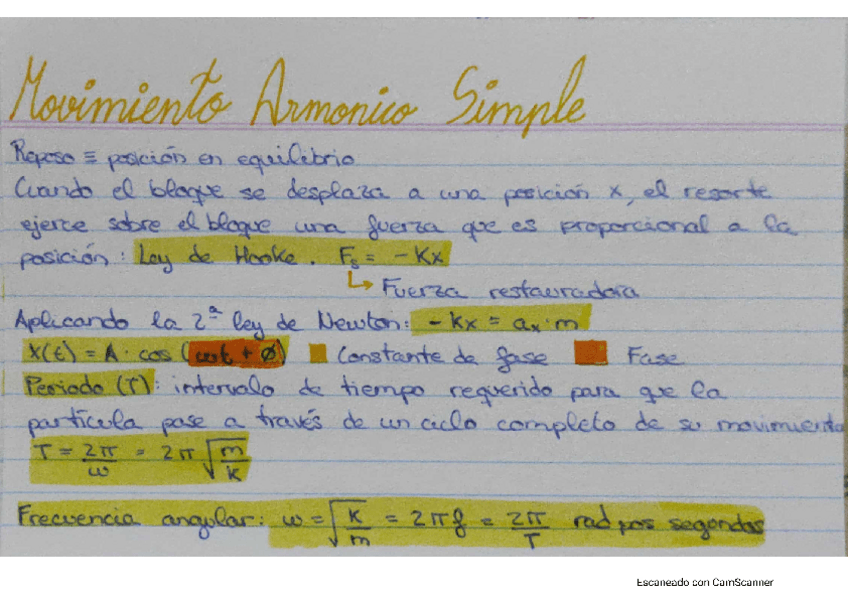 Movimiento Armonico Simple
Reposo ≡ posición en equilibrio
Cuando el bloque se desplaza a una posición x, el resorte
ejerce sobre el bloque una fuerza que es proporcional a la
posición: Ley de Hooke. Fs = - Kx
↳ Fuerza restauradora
Aplicando la 2ª ley de Newton: - Kx = ax · m
X(t) = A · cos (ωt + ϕ) Constante de fase Fase
Periodo (T): intervalo de tiempo requerido para que la
partícula pase a través de un ciclo completo de su movimiento
T = 2π/ω = 2π √(m/K)
Frecuencia angular: ω = √(K/m) = 2πf = 2π/T rad pos segondos
Escaneado con CamScanner